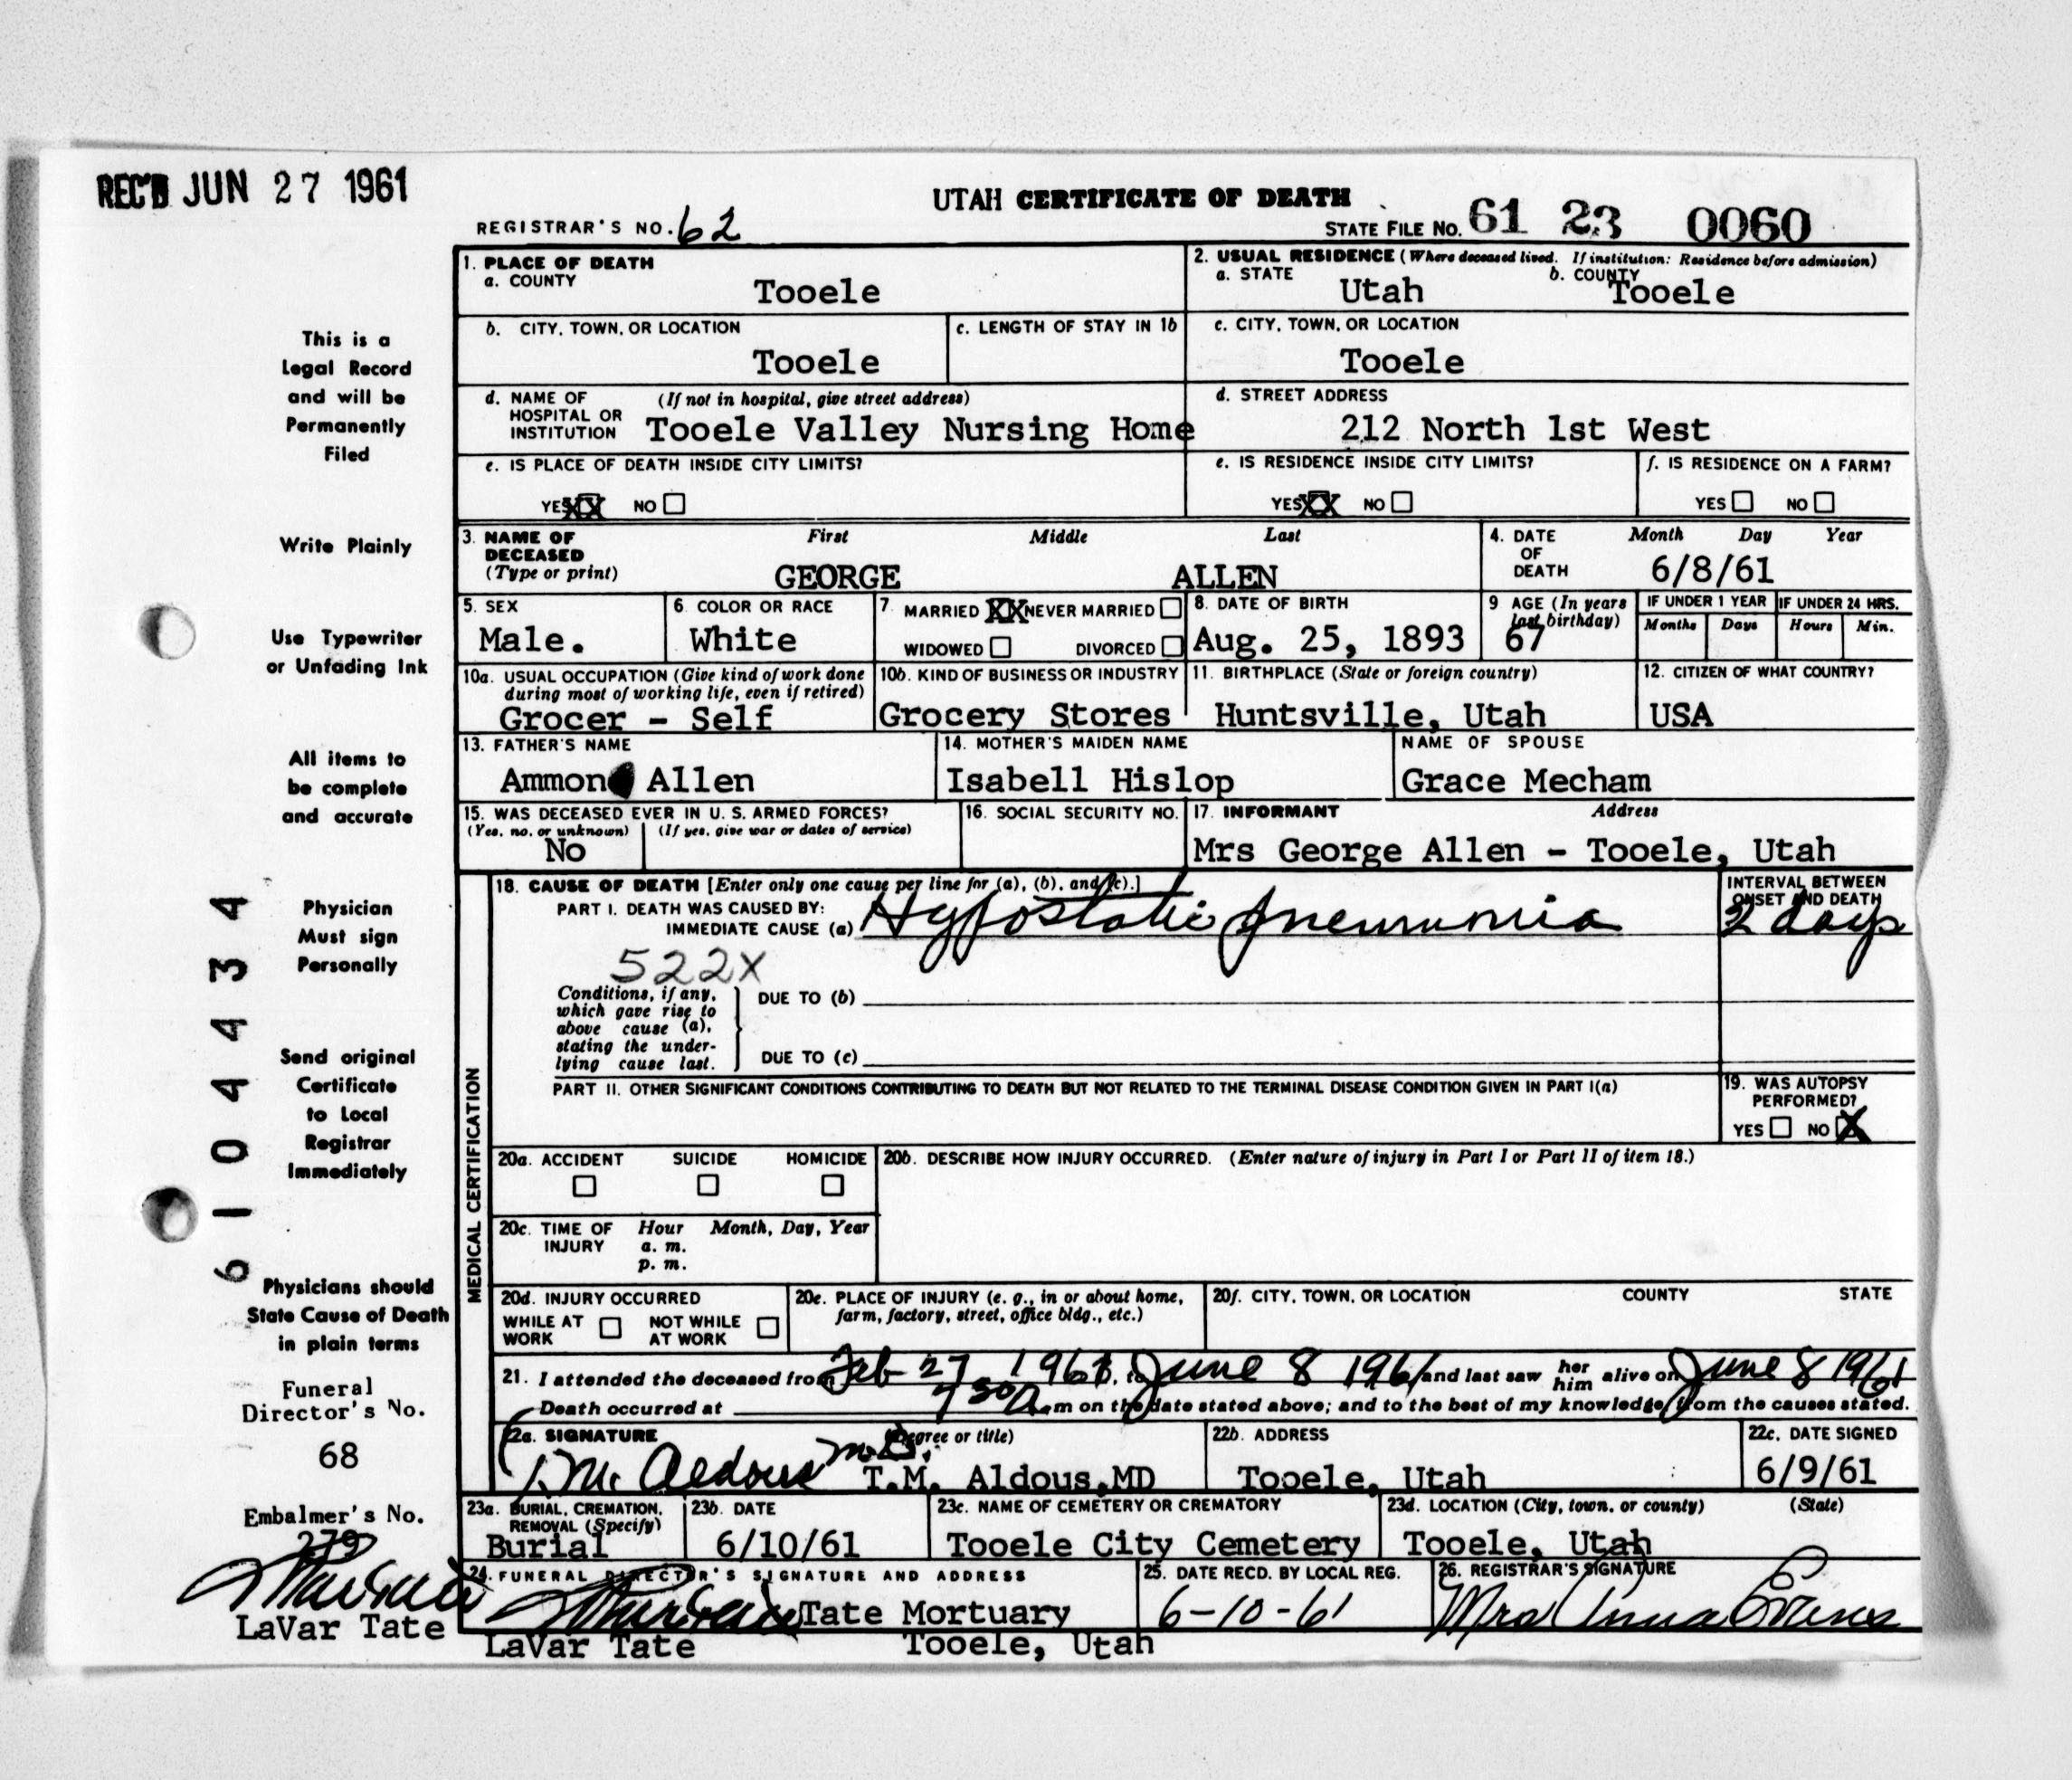 REC'D JUN 27 1961
UTAH CERTIFICATE OF DEATH
REGISTRAR'S NO. 62
STATE FILE No. 61 23 0060
1. PLACE OF DEATH
a. COUNTY
Tooele
2. USUAL RESIDENCE (Where deceased lived. If institution: Residence before admission)
a. STATE
Utah
b. COUNTY
Tooele
b. CITY, TOWN, OR LOCATION
Tooele
c. LENGTH OF STAY IN 1b
c. CITY, TOWN, OR LOCATION
Tooele
d. NAME OF HOSPITAL OR INSTITUTION
(If not in hospital, give street address)
Tooele Valley Nursing Home
d. STREET ADDRESS
212 North 1st West
e. IS PLACE OF DEATH INSIDE CITY LIMITS?
YES XX NO
e. IS RESIDENCE INSIDE CITY LIMITS?
YES XX NO
f. IS RESIDENCE ON A FARM?
YES NO
3. NAME OF DECEASED
(Type or print)
First Middle Last
GEORGE ALLEN
4. DATE OF DEATH
Month Day Year
6/8/61
5. SEX
Male.
6. COLOR OR RACE
White
7. MARRIED XX NEVER MARRIED
WIDOWED DIVORCED
8. DATE OF BIRTH
Aug. 25, 1893
9 AGE (In years last birthday)
67
IF UNDER 1 YEAR
Months Days
IF UNDER 24 HRS.
Hours Min.
10a. USUAL OCCUPATION (Give kind of work done
during most of working life, even if retired)
Grocer - Self
10b. KIND OF BUSINESS OR INDUSTRY
Grocery Stores
11. BIRTHPLACE (State or foreign country)
Huntsville, Utah
12. CITIZEN OF WHAT COUNTRY?
USA
13. FATHER'S NAME
Ammon Allen
14. MOTHER'S MAIDEN NAME
Isabell Hislop
NAME OF SPOUSE
Grace Mecham
15. WAS DECEASED EVER IN U. S. ARMED FORCES?
(Yes, no, or unknown) (If yes, give war or dates of service)
No
16. SOCIAL SECURITY NO.
17. INFORMANT Address
Mrs George Allen - Tooele, Utah
MEDICAL CERTIFICATION
18. CAUSE OF DEATH [Enter only one cause per line for (a), (b), and (c).]
PART I. DEATH WAS CAUSED BY:
IMMEDIATE CAUSE (a) Hypostatic pneumonia
INTERVAL BETWEEN
ONSET AND DEATH
2 days
522X
Conditions, if any,
which gave rise to
above cause (a),
stating the under-
lying cause last.
DUE TO (b)
DUE TO (c)
PART II. OTHER SIGNIFICANT CONDITIONS CONTRIBUTING TO DEATH BUT NOT RELATED TO THE TERMINAL DISEASE CONDITION GIVEN IN PART I(a)
19. WAS AUTOPSY
PERFORMED?
YES NO X
20a. ACCIDENT SUICIDE HOMICIDE
20b. DESCRIBE HOW INJURY OCCURRED. (Enter nature of injury in Part I or Part II of item 18.)
20c. TIME OF INJURY
Hour Month, Day, Year
a. m.
p. m.
20d. INJURY OCCURRED
WHILE AT WORK
NOT WHILE AT WORK
20e. PLACE OF INJURY (e. g., in or about home,
farm, factory, street, office bldg., etc.)
20f. CITY, TOWN, OR LOCATION COUNTY STATE
21. I attended the deceased from Feb 27 1961, to June 8 1961 and last saw her him alive on June 8 1961
Death occurred at m on the date stated above; and to the best of my knowledge from the causes stated.
22a. SIGNATURE (Degree or title)
T.M. Aldous M.D. T.M. Aldous, MD
22b. ADDRESS
Tooele, Utah
22c. DATE SIGNED
6/9/61
23a. BURIAL, CREMATION,
REMOVAL (Specify)
Burial
23b. DATE
6/10/61
23c. NAME OF CEMETERY OR CREMATORY
Tooele City Cemetery
23d. LOCATION (City, town, or county) (State)
Tooele, Utah
24. FUNERAL DIRECTOR'S SIGNATURE AND ADDRESS
Tate Mortuary
LaVar Tate Tooele, Utah
25. DATE RECD. BY LOCAL REG.
6-10-61
26. REGISTRAR'S SIGNATURE
Mrs Anna Evans
This is a
Legal Record
and will be
Permanently
Filed
Write Plainly
Use Typewriter
or Unfading Ink
All items to
be complete
and accurate
Physician
Must sign
Personally
Send original
Certificate
to Local
Registrar
Immediately
Physicians should
State Cause of Death
in plain terms
61 04434
Funeral
Director's No.
68
Embalmer's No.
279
LaVar Tate